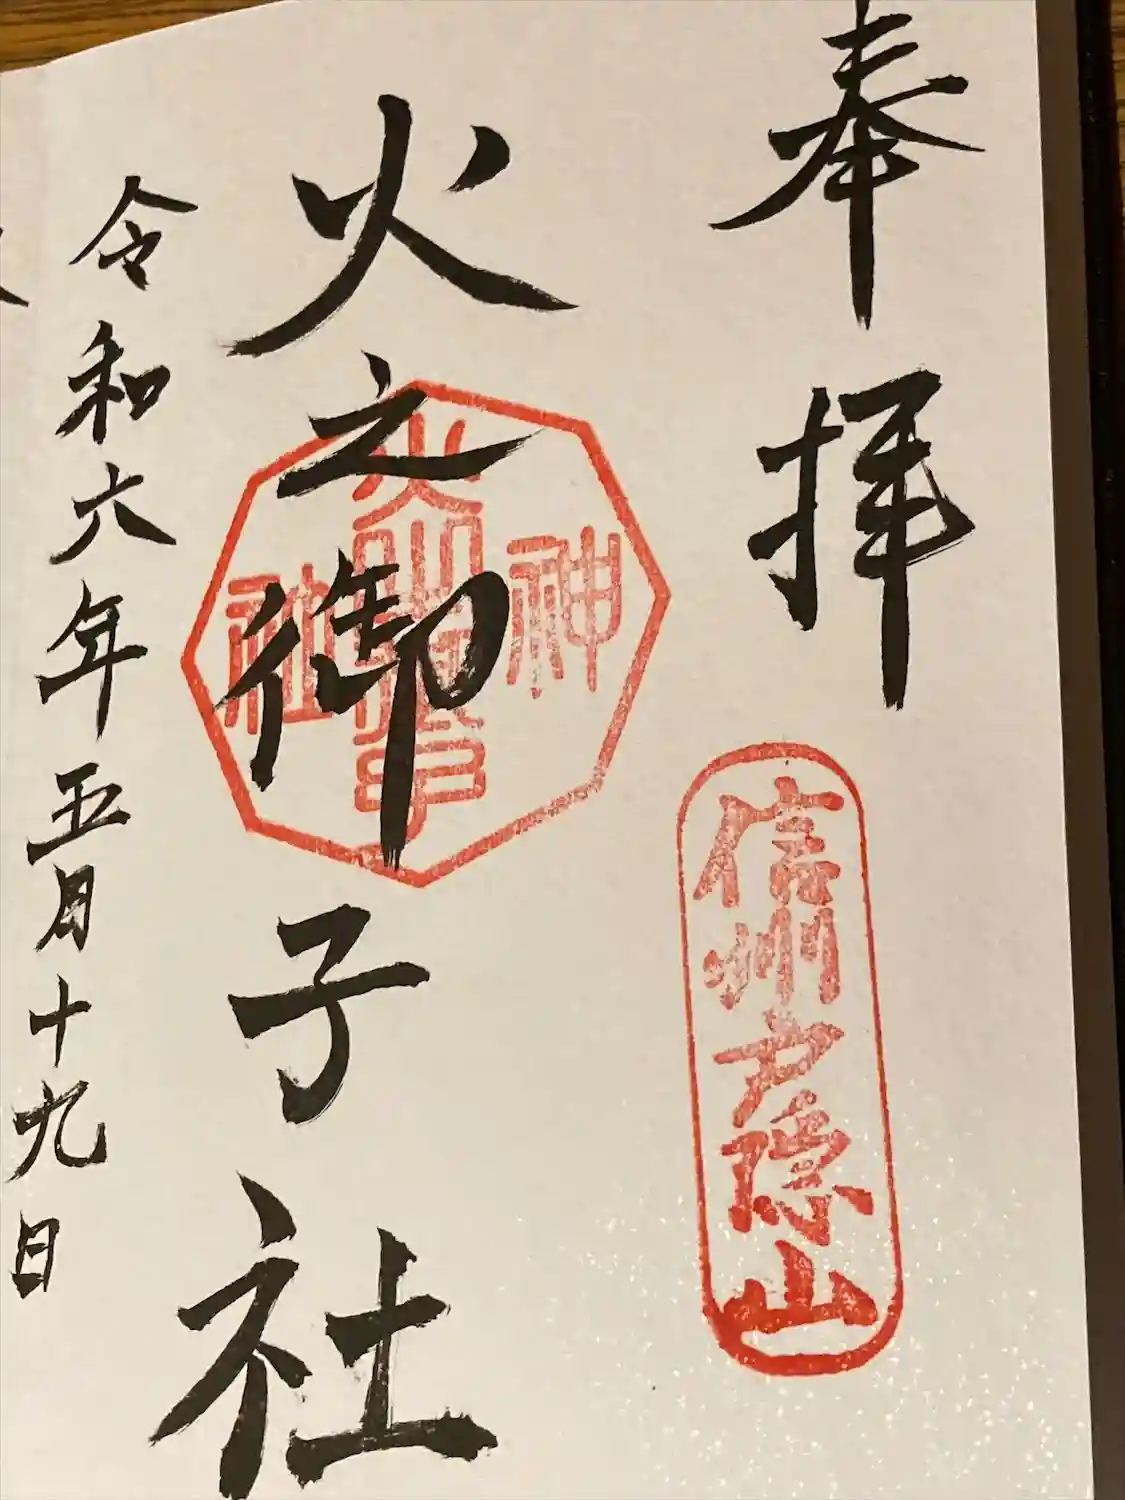 奉拝
信州戸隠山
火之御子社
神社
令和六年五月十九日